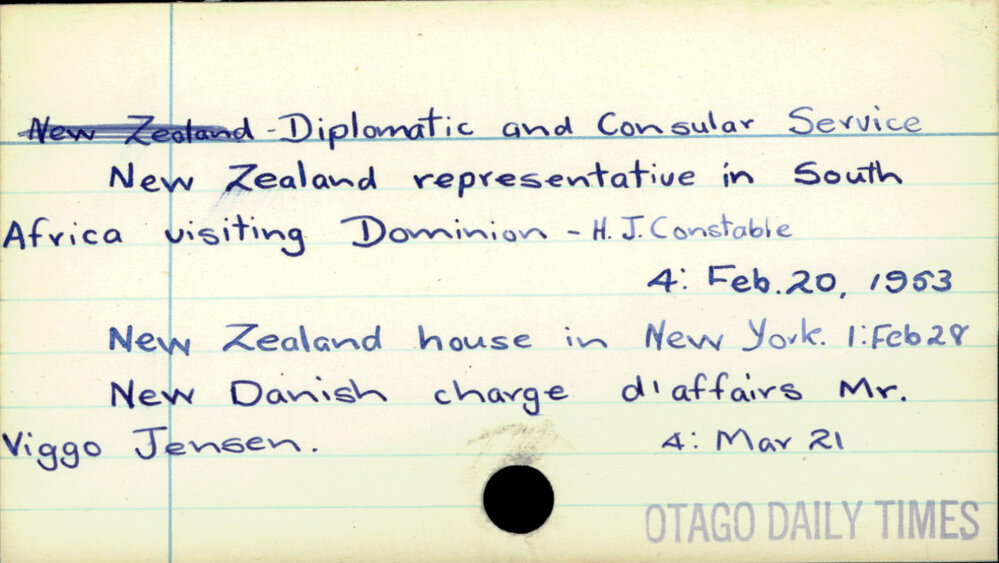 New Zealand - Diplomatic and Consular Service
New Zealand representative in South
Africa visiting Dominion - H. J. Constable
4: Feb. 20, 1953
New Zealand house in New York. 1: Feb 28
New Danish charge d'affairs Mr.
Viggo Jensen. 4: Mar 21
OTAGO DAILY TIMES